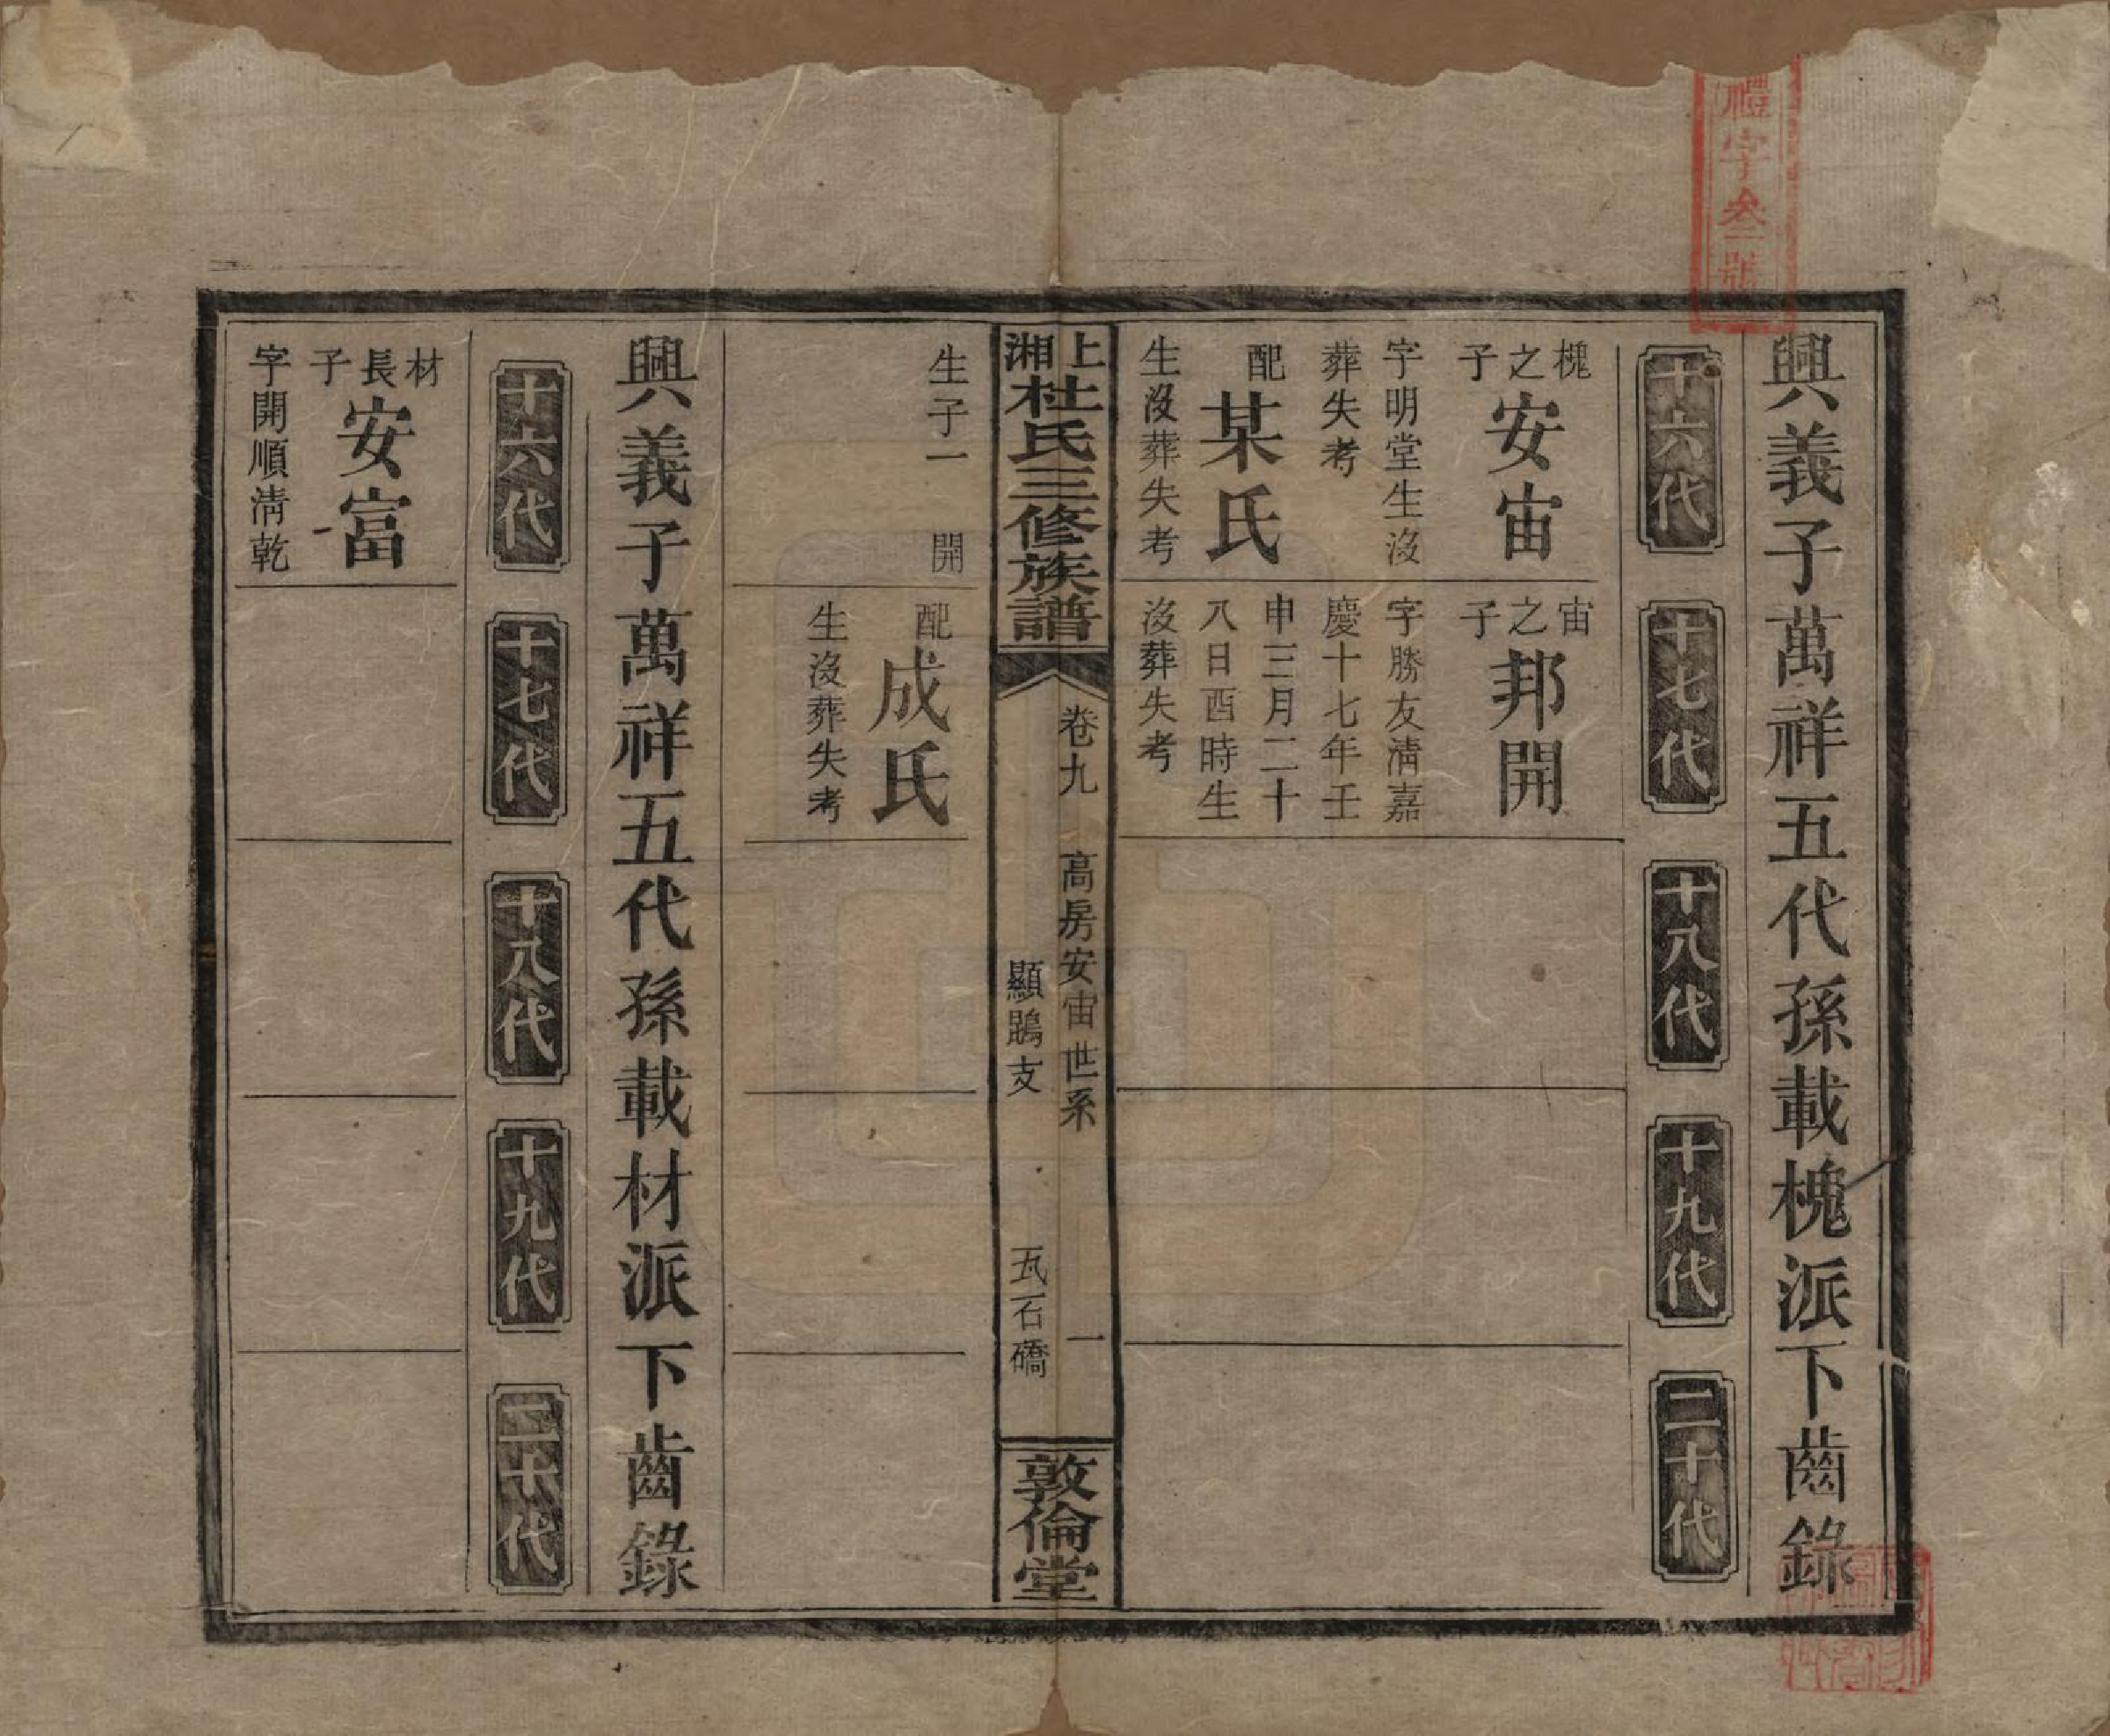 禮字叄號
興義子萬祥五代孫載槐派下齒錄
十六代
十七代
十八代
十九代
二十代
槐之子
安宙
字明堂生沒
葬失考
配
某氏
生沒葬失考
宙之子
邦開
字勝友清嘉
慶十七年壬
申三月二十
八日酉時生
沒葬失考
上湘杜氏三修族譜
卷九
高房安宙世系
顯鵾支
一
瓦石礄
敦倫堂
生子一 開
配
成氏
生沒葬失考
興義子萬祥五代孫載材派下齒錄
十六代
十七代
十八代
十九代
二十代
材長子
安富
字開順清乾